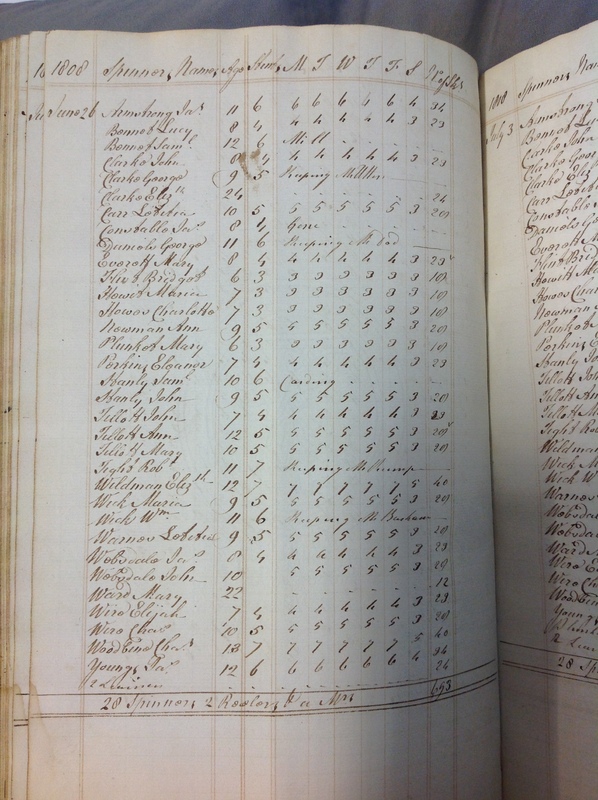 1808 Spinners Names Age Stint M T W T F S No of Sks
June 26 Armstrong Jas 11 6 6 6 6 6 6 4 34
Bonnet Lucy 8 4 4 4 4 4 4 3 23
Bonnet Saml 12 6 Mill
Clarke John 8 4 4 4 4 4 4 3 23
Clarke George 9 5 Keeping
Clarke Elizth 24 24
Carr Letitia 10 5 5 5 5 5 5 3 28
Constable Jas 8 4 Gone
Daniels George 11 6 Keeping
Everett Mary 8 4 4 4 4 4 4 3 23
Flut Bridget 6 3 3 3 3 3 3 3 18
Howit Maria 7 3 3 3 3 3 3 3 18
Howes Charlotte 7 3 3 3 3 3 3 3 18
Newman Ann 9 5 5 5 5 5 5 3 28
Plunket Mary 6 3 3 3 3 3 3 3 18
Perkins Eleanor 7 4 4 4 4 4 4 3 23
Stanly Saml 10 6 Carding
Stanly John 9 5 5 5 5 5 5 3 28
Tillott John 7 4 4 4 4 4 4 3 23
Tillott Ann 12 5 5 5 5 5 5 3 28
Tillott Mary 10 5 5 5 5 5 5 3 28
Tight Robt 11 7 Keeping
Wildman Elizth 12 7 7 7 7 7 7 5 40
Wick Maria 9 5 5 5 5 5 5 3 28
Wick Wm 11 6 Keeping
Warnes Letitia 9 5 5 5 5 5 5 3 28
Websdale Jas 8 4 4 4 4 4 4 3 23
Websdale John 10 5 5 5 5 5 3 28
Ward Mary 22 12
Wire Elijah 7 4 4 4 4 4 4 3 23
Wire Chas 10 5 5 5 5 5 5 3 28
Woodbine Chas 13 7 7 7 7 7 7 5 40
Youngs Jas 12 6 6 6 6 6 6 4 34
24
28 Spinners 2 Reelers 653
1808 Spinners Na
July 3 Armstrong
Bonnet Lu
Bonnet Sam
Clarke John
Clarke Geor
Clarke Eliz
Carr Letitia
Constable Ja
Daniels Geo
Everett Ma
Flut Brid
Howit Ma
Howes Char
Newman A
Plunket
Perkins E
Stanly Joh
Tillott J
Tillott An
Tillott M
Tight Rob
Wildman
Wick M
Wick W
Warnes
Websda
Websda
Ward M
Wire E
Wire Cha
Woodbin
Young
28 Sp